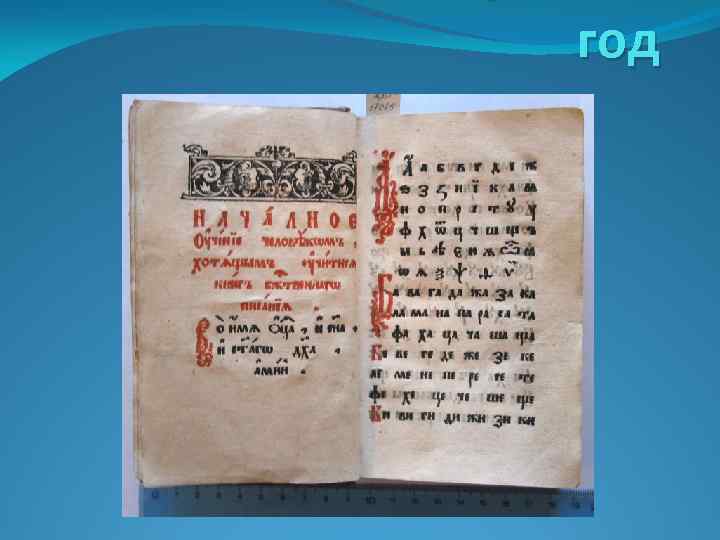 год
НАЧАЛНОЕ
Оуче́нїе человѣ́комъ,
хотѧ́щымъ оучи́тисѧ
кни́гъ бж҃е́ственнагѡ
писа́нїѧ.
Во и҆́мѧ Ѻ҆ц҃а̀, и҆ сн҃а,
и҆ ст҃а́гѡ дх҃а.
а҆ми́нь.
А а б в г д е ж
ѕ з и ї к л м
н о п р с т у
ф х ѿ ц ч ш щ ъ
ы ь ѣ ю
ѡ ѧ ѯ ѱ ѳ ѵ
Ба ва га да жа за ка
ла ма на па ра са та
фа ха ца ча ша ща
Бе ве ге де же зе ке
ле ме не пе ре се те
фе хе це че ше ще
Би ви ги ди жи зи ки